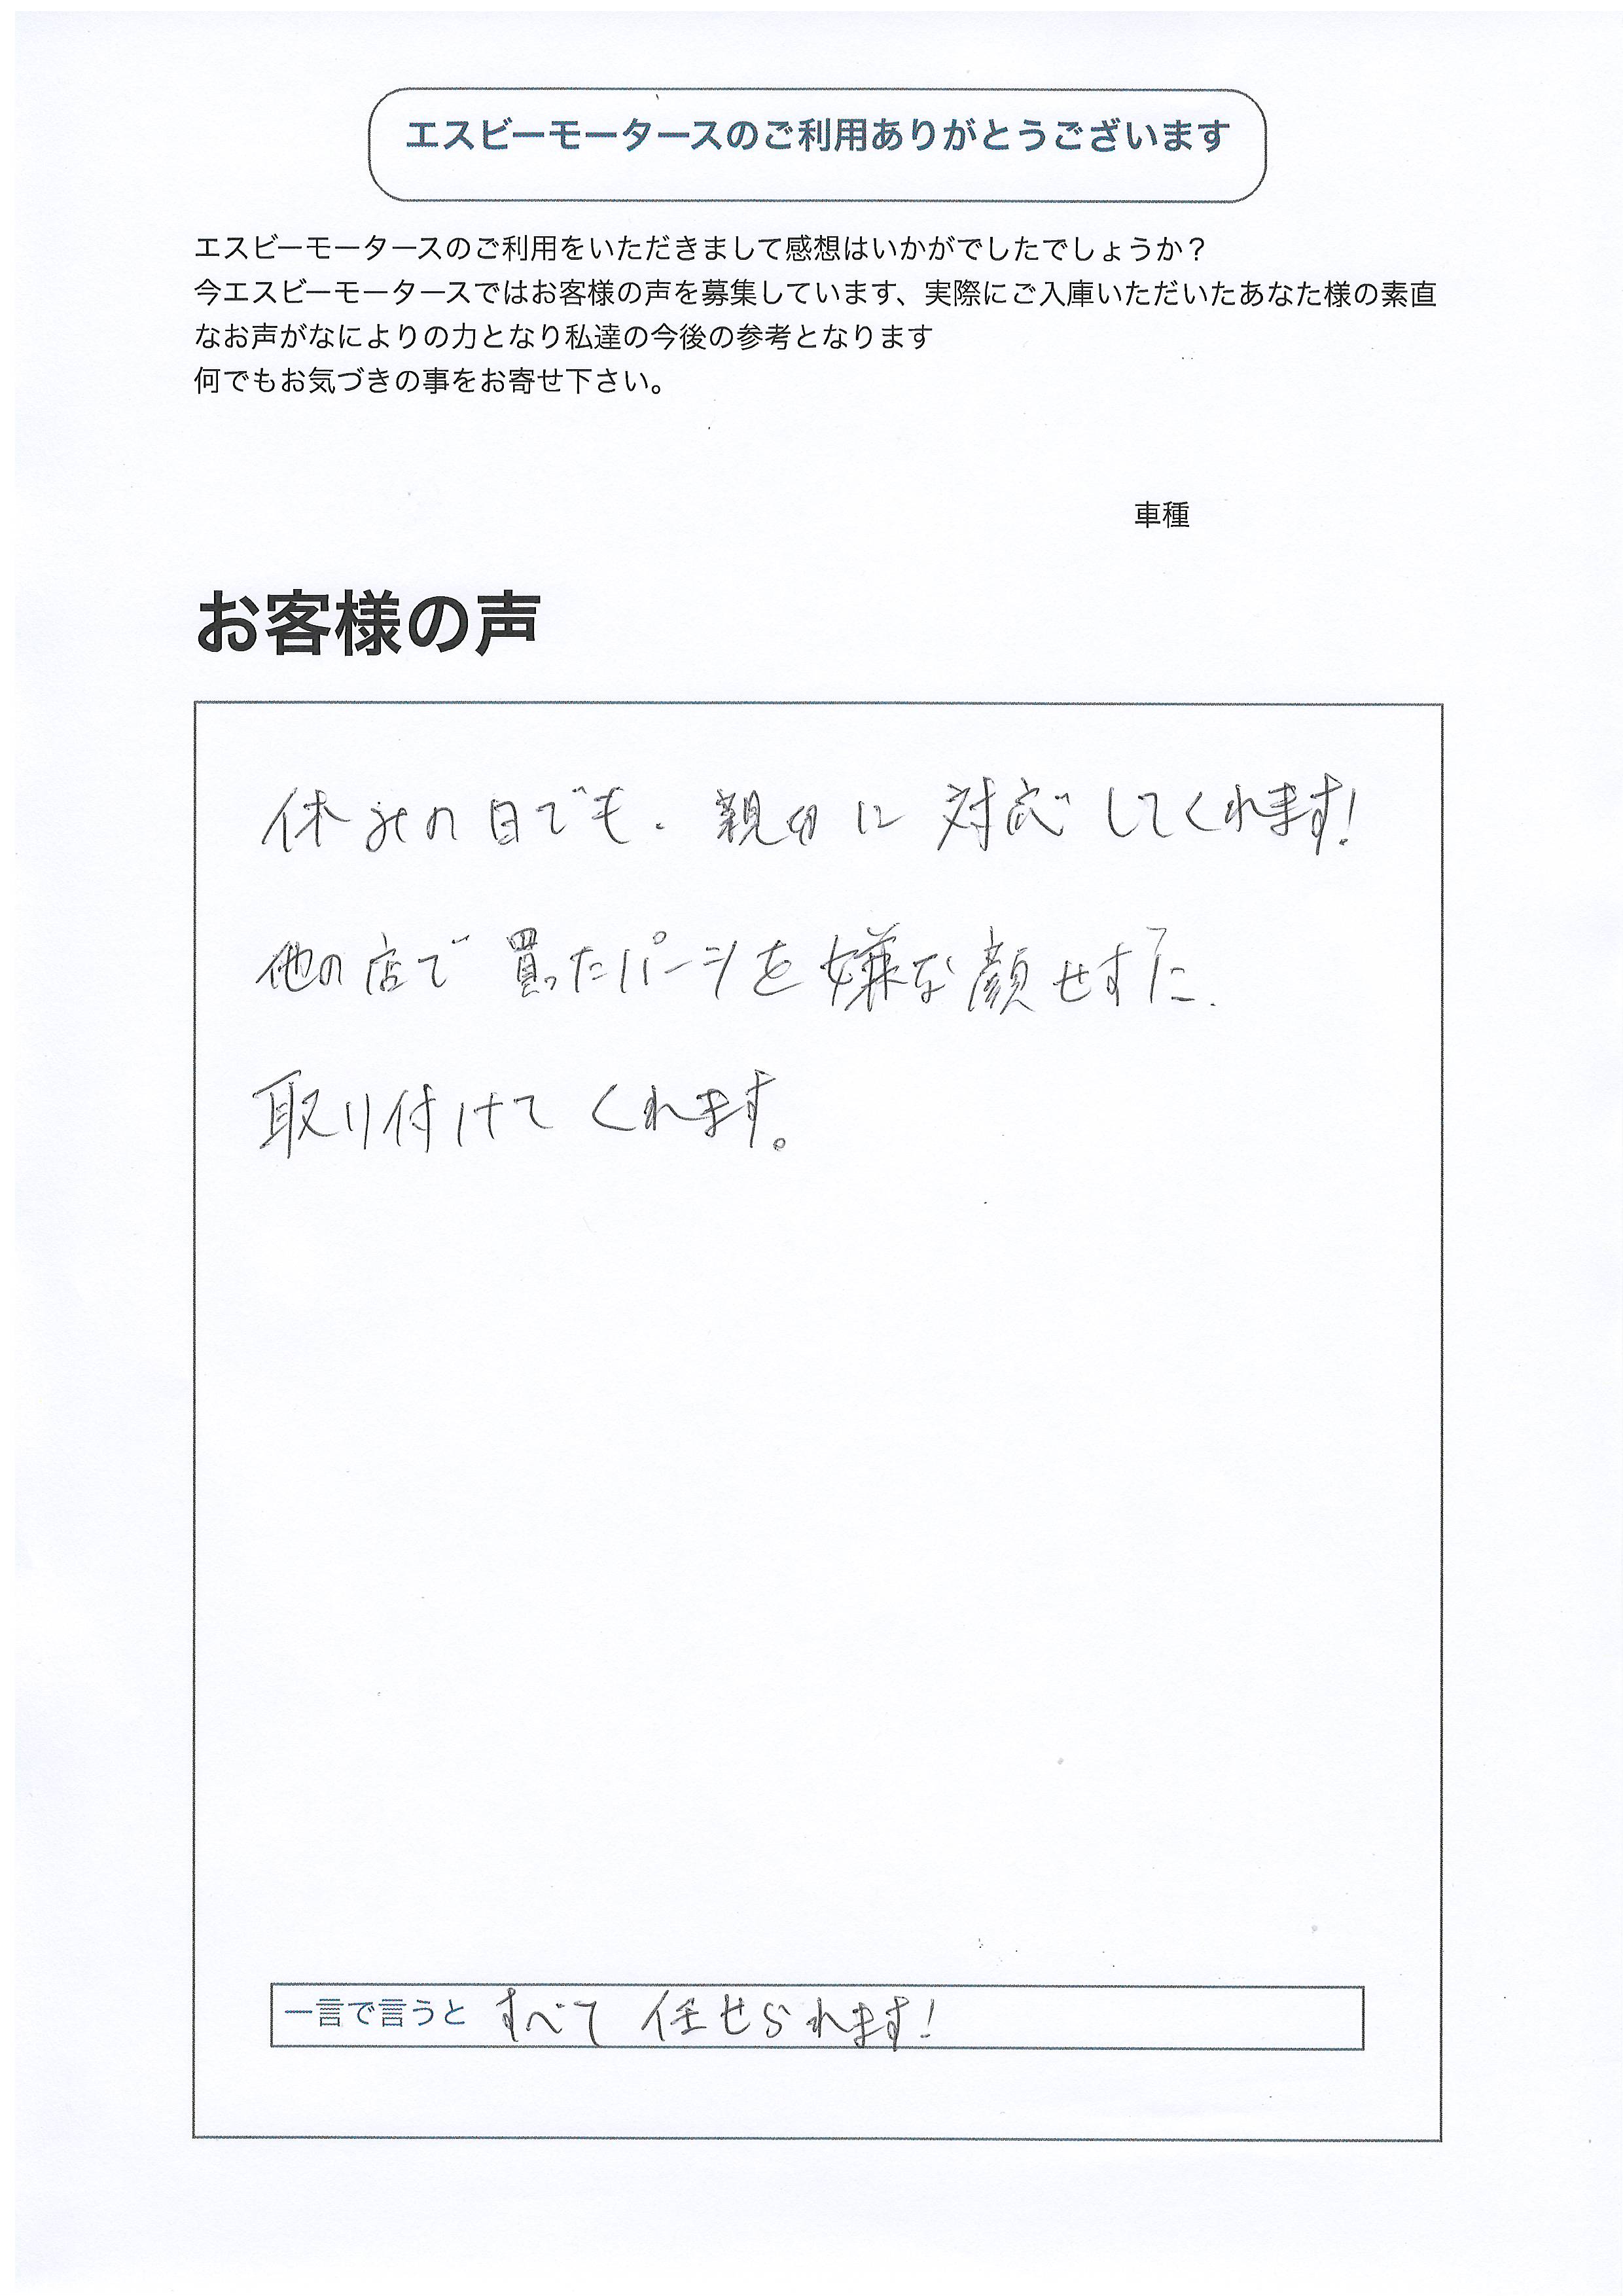 エスビーモータースのご利用ありがとうございます
エスビーモータースのご利用をいただきまして感想はいかがでしたでしょうか？
今エスビーモータースではお客様の声を募集しています、実際にご入庫いただいたあなた様の素直
なお声がなによりの力となり私達の今後の参考となります
何でもお気づきの事をお寄せ下さい。
車種
お客様の声
休みの日でも、親切に対応してくれます!
他の店で買ったパーツを嫌な顔せずに、
取り付けてくれます。
一言で言うと すべて任せられます!